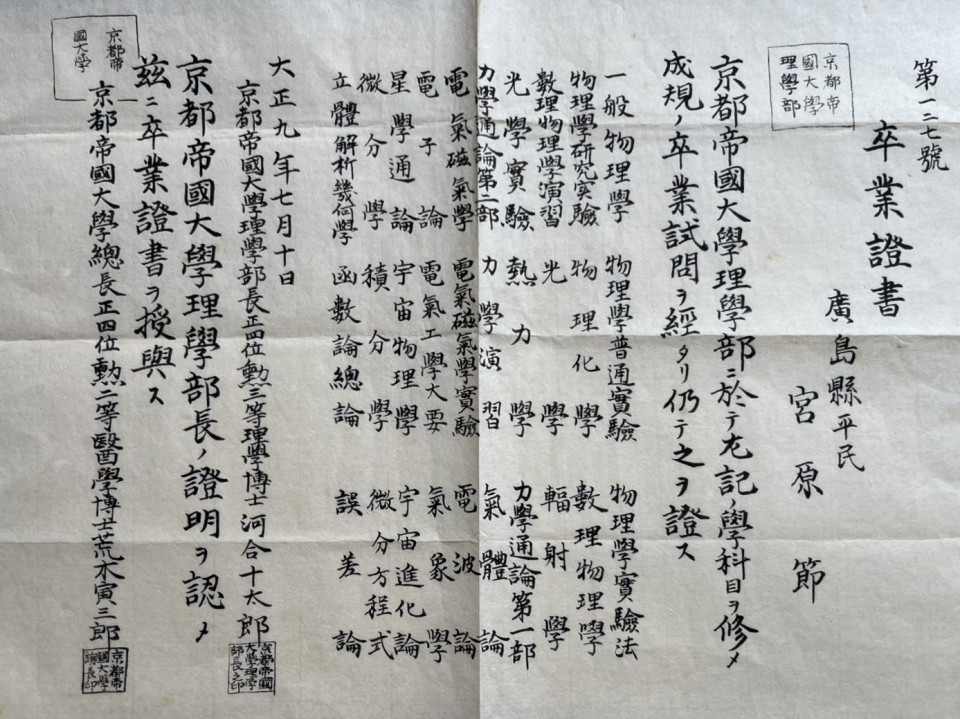 第一二七號
卒業證書
廣島縣平民
宮原節
京都帝
國大學
理學部
京都帝國大學理學部ニ於テ左記ノ學科目ヲ修メ
成規ノ卒業試問ヲ經タリ仍テ之ヲ證ス
一般物理學 物理學普通實驗 物理學實驗法
物理學研究実驗 物理化學 數理物理學
數理物理學演習 光學 輻射學
光學實驗 熱力學 力學通論第一部
力學通論第二部 力學演習 氣體論
電氣磁氣學 電氣磁氣學實驗 電波論
電子論 電氣工學大要 氣象學
星學通論 宇宙物理學 宇宙進化論
微分學 積分學 微分方程式
立體解析幾何學 函數論總論 誤差論
大正九年七月十日
京都帝國大學理學部長正四位勲三等理學博士河合十太郎
京都帝國
大學理學
部長之印
京都帝國大學理學部長ノ證明ヲ認メ
茲ニ卒業證書ヲ授與ス
京都帝
國大學
京都帝國大學總長正四位勲二等醫學博士荒木寅三郎
京都帝
國大學
總長印